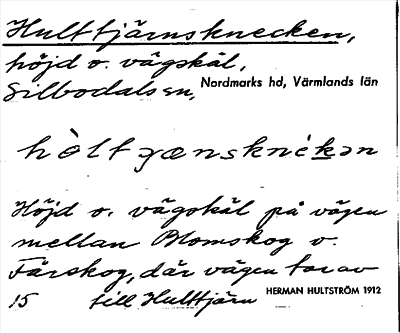 Hulttjärnsknecken,
höjd o. vägskäl,
Silbodals sn, Nordmarks hd, Värmlands län
hòltjænsknékən
Höjd o. vägskäl på vägen
mellan Blomskog o.
Färskog, där vägen tar av
15 till Hulttjärn HERMAN HULTSTRÖM 1912